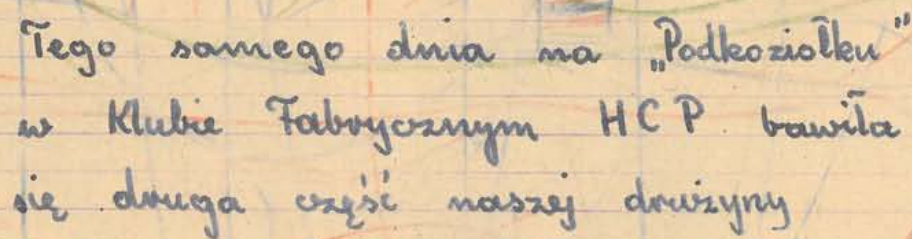 Tego samego dnia na „Podkoziołku”
w Klubie Fabrycznym HCP bawiła
się druga część naszej drużyny